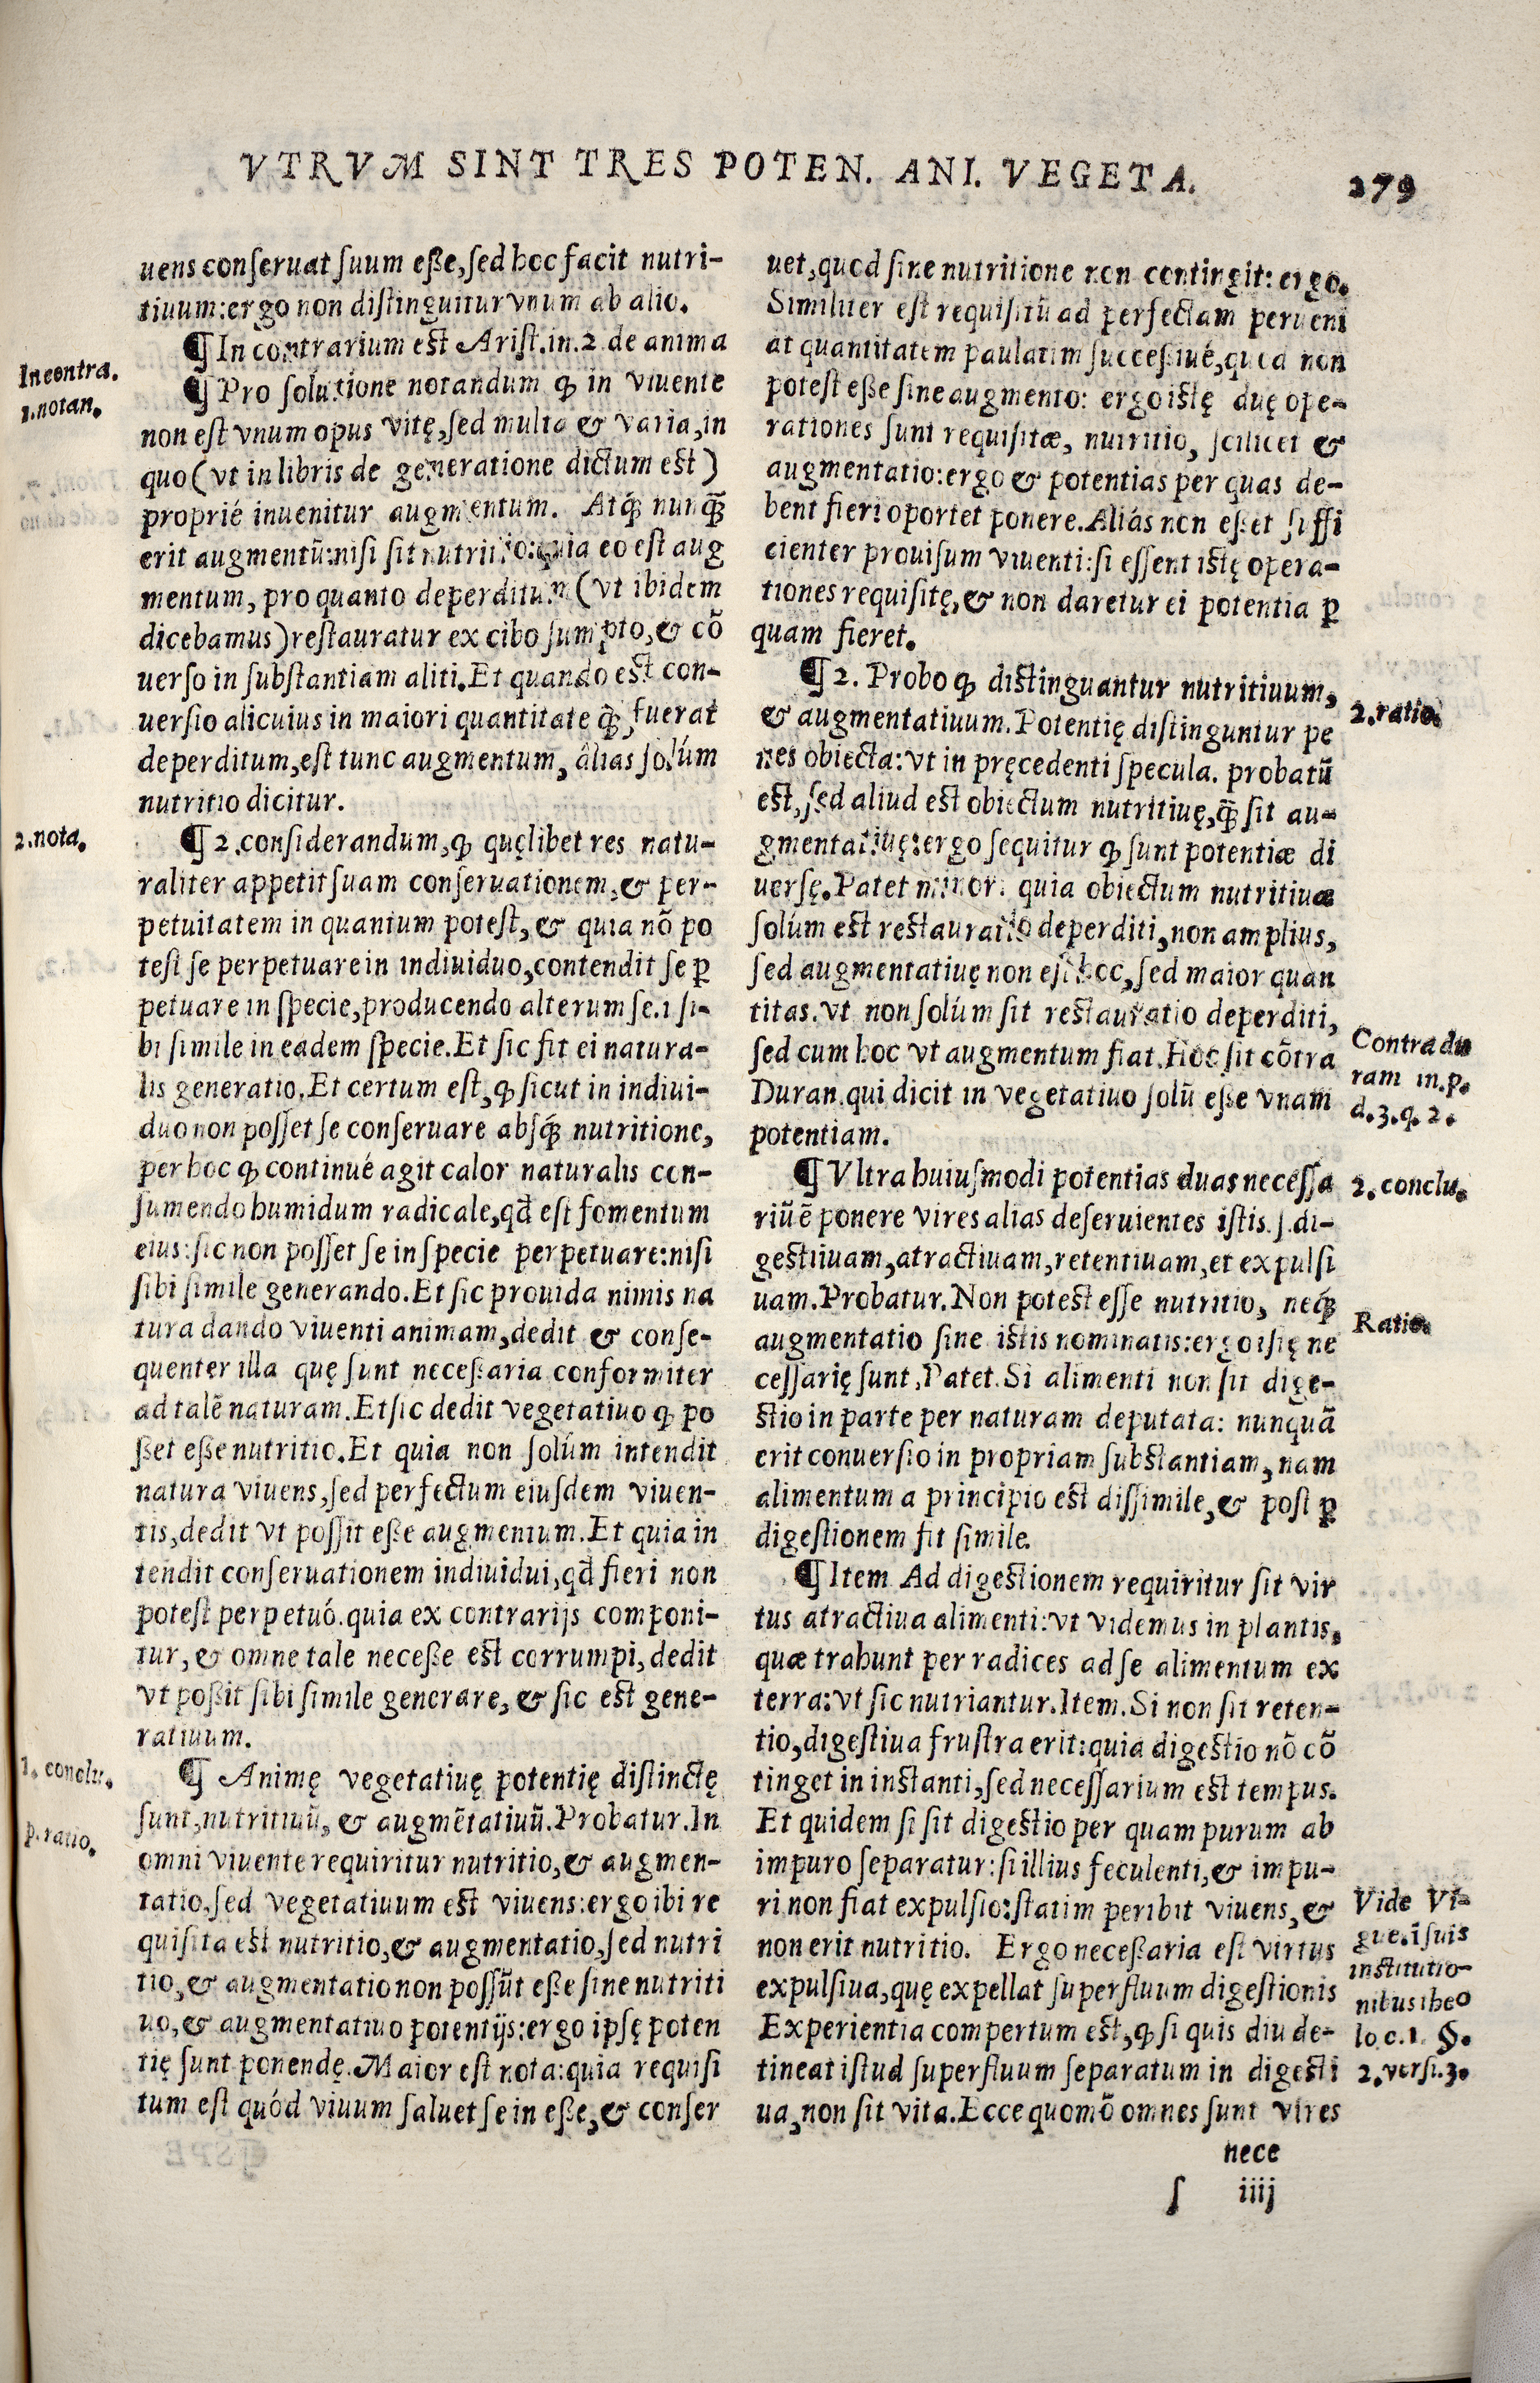 VTRVM SINT TRES POTEN. ANI. VEGETA.
279
uens conſeruat ſuum eſſe, ſed hoc facit nutri-
tiuum: ergo non diſtinguitur vnum ab alio.
¶ In contrarium eſt Ariſt. in. 2. de anima
¶ Pro ſolutione notandum ꝙ in viuente
non eſt vnum opus vitę, ſed multa & varia, in
quo (vt in libris de generatione dictum eſt)
proprié inuenitur augmentum. Atq́; nunq̃
erit augmentũ: niſi ſit nutritio: quia eo eſt aug
mentum, pro quanto deperditum (vt ibidem
dicebamus) reſtauratur ex cibo ſumpto, & cõ
uerſo in ſubſtantiam aliti. Et quando eſt con-
uerſio alicuius in maiori quantitate q̃; fuerat
deperditum, eſt tunc augmentum, àlias ſolúm
nutritio dicitur.
¶ 2. conſiderandum, ꝙ quęlibet res natu-
raliter appetit ſuam conſeruationem, & per-
petuitatem in quantum poteſt, & quia nõ po
teſt ſe perpetuare in indiuiduo, contendit ſe ꝑ
petuare in ſpecie, producendo alterum ſe. i ſi-
bi ſimile in eadem ſpecie. Et ſic fit ei natura-
lis generatio. Et certum eſt, ꝙ ſicut in indiui-
duo non poſſet ſe conſeruare abſq́; nutritione,
per hoc ꝙ continué agit calor naturalis con-
ſumendo humidum radicale, qd̃ eſt fomentum
eius: ſic non poſſet ſe in ſpecie perpetuare: niſi
ſibi ſimile generando. Et ſic prouida nimis na
tura dando viuenti animam, dedit & conſe-
quenter illa quę ſunt neceſſaria conformiter
ad talẽ naturam. Et ſic dedit vegetatiuo ꝙ po
ſſet eſſe nutritio. Et quia non ſolúm intendit
natura viuens, ſed perfectum eiuſdem viuen-
tis, dedit vt poſſit eſſe augmentum. Et quia in
tendit conſeruationem indiuidui, qd̃ fieri non
poteſt perpetuó. quia ex contrarijs componi-
tur, & omne tale neceſſe eſt corrumpi, dedit
vt poſſit ſibi ſimile generare, & ſic eſt gene-
ratiuum.
¶ Animę vegetatiuę potentię diſtinctę
ſunt, nutritiuũ, & augmẽtatiuũ. Probatur. In
omni viuente requiritur nutritio, & augmen-
tatio, ſed vegetatiuum eſt viuens: ergo ibi re
quiſita eſt nutritio, & augmentatio, ſed nutri
tio, & augmentatio non poſſũt eſſe ſine nutriti
uo, & augmentatiuo potentijs: ergo ipſę poten
tię ſunt ponendę. Maior eſt nota: quia requiſi
tum eſt quód viuum ſaluet ſe in eſſe, & conſer
In contra.
1. notan.
2. nota.
1. conclu.
p. ratio.
uet, quod ſine nutritione non contingit: ergo.
Similiter eſt requiſitũ ad perfectam perueni
at quantitatem paulatim ſucceſſiué, quod non
poteſt eſſe ſine augmento: ergo iſtę duę ope-
rationes ſunt requiſitæ, nutritio, ſcilicet &
augmentatio: ergo & potentias per quas de-
bent fieri oportet ponere. Aliás non eſſet ſuffi
cienter prouiſum viuenti: ſi eſſent iſtę opera-
tiones requiſitę, & non daretur ei potentia ꝑ
quam fieret.
¶ 2. Probo ꝙ diſtinguantur nutritiuum,
& augmentatiuum. Potentię diſtinguntur pe
nes obiecta: vt in pręcedenti ſpecula. probatũ
eſt, ſed aliud eſt obiectum nutritiuę, q̃; ſit au-
gmentatiuę: ergo ſequitur ꝙ ſunt potentiæ di
uerſę. Patet minor. quia obiectum nutritiuæ
ſolúm eſt reſtauratio deperditi, non amplius,
ſed augmentatiuę non eſt hoc, ſed maior quan
titas. vt non ſolúm ſit reſtauratio deperditi,
ſed cum hoc vt augmentum fiat. Hoc ſit cõtra
Duran. qui dicit in vegetatiuo ſolũ eſſe vnam
potentiam.
¶ Vltra huiuſmodi potentias duas neceſſa
riũ ẽ ponere vires alias deſeruientes iſtis. ſ. di-
geſtiuam, atractiuam, retentiuam, et expulſi
uam. Probatur. Non poteſt eſſe nutritio, neq́;
augmentatio ſine iſtis nominatis: ergo iſtę ne
ceſſarię ſunt, Patet. Si alimenti non ſit dige-
ſtio in parte per naturam deputata: nunquã
erit conuerſio in propriam ſubſtantiam, nam
alimentum a principio eſt diſſimile, & poſt ꝑ
digeſtionem fit ſimile.
¶ Item Ad digeſtionem requiritur ſit vir
tus atractiua alimenti: vt videmus in plantis,
quæ trahunt per radices ad ſe alimentum ex
terra: vt ſic nutriantur. Item. Si non ſit reten-
tio, digeſtiua fruſtra erit: quia digeſtio nõ cõ
tinget in inſtanti, ſed neceſſarium eſt tempus.
Et quidem ſi ſit digeſtio per quam purum ab
impuro ſeparatur: ſi illius feculenti, & impu-
ri non fiat expulſio: ſtatim peribit viuens, &
non erit nutritio. Ergo neceſſaria eſt virtus
expulſiua, quę expellat ſuperfluum digeſtionis
Experientia compertum eſt, ꝙ ſi quis diu de-
tineat iſtud ſuperfluum ſeparatum in digeſti
ua, non ſit vita. Ecce quomõ omnes ſunt vires
2. ratio.
Contra du
ram in. p.
d. 3. q. 2.
2. conclu.
Ratio.
Vide Vi-
gue. ĩ ſuis
inſtitutio-
nibus theo
lo. c. 1. §.
2. verſi. 3.
nece
ſ iiij